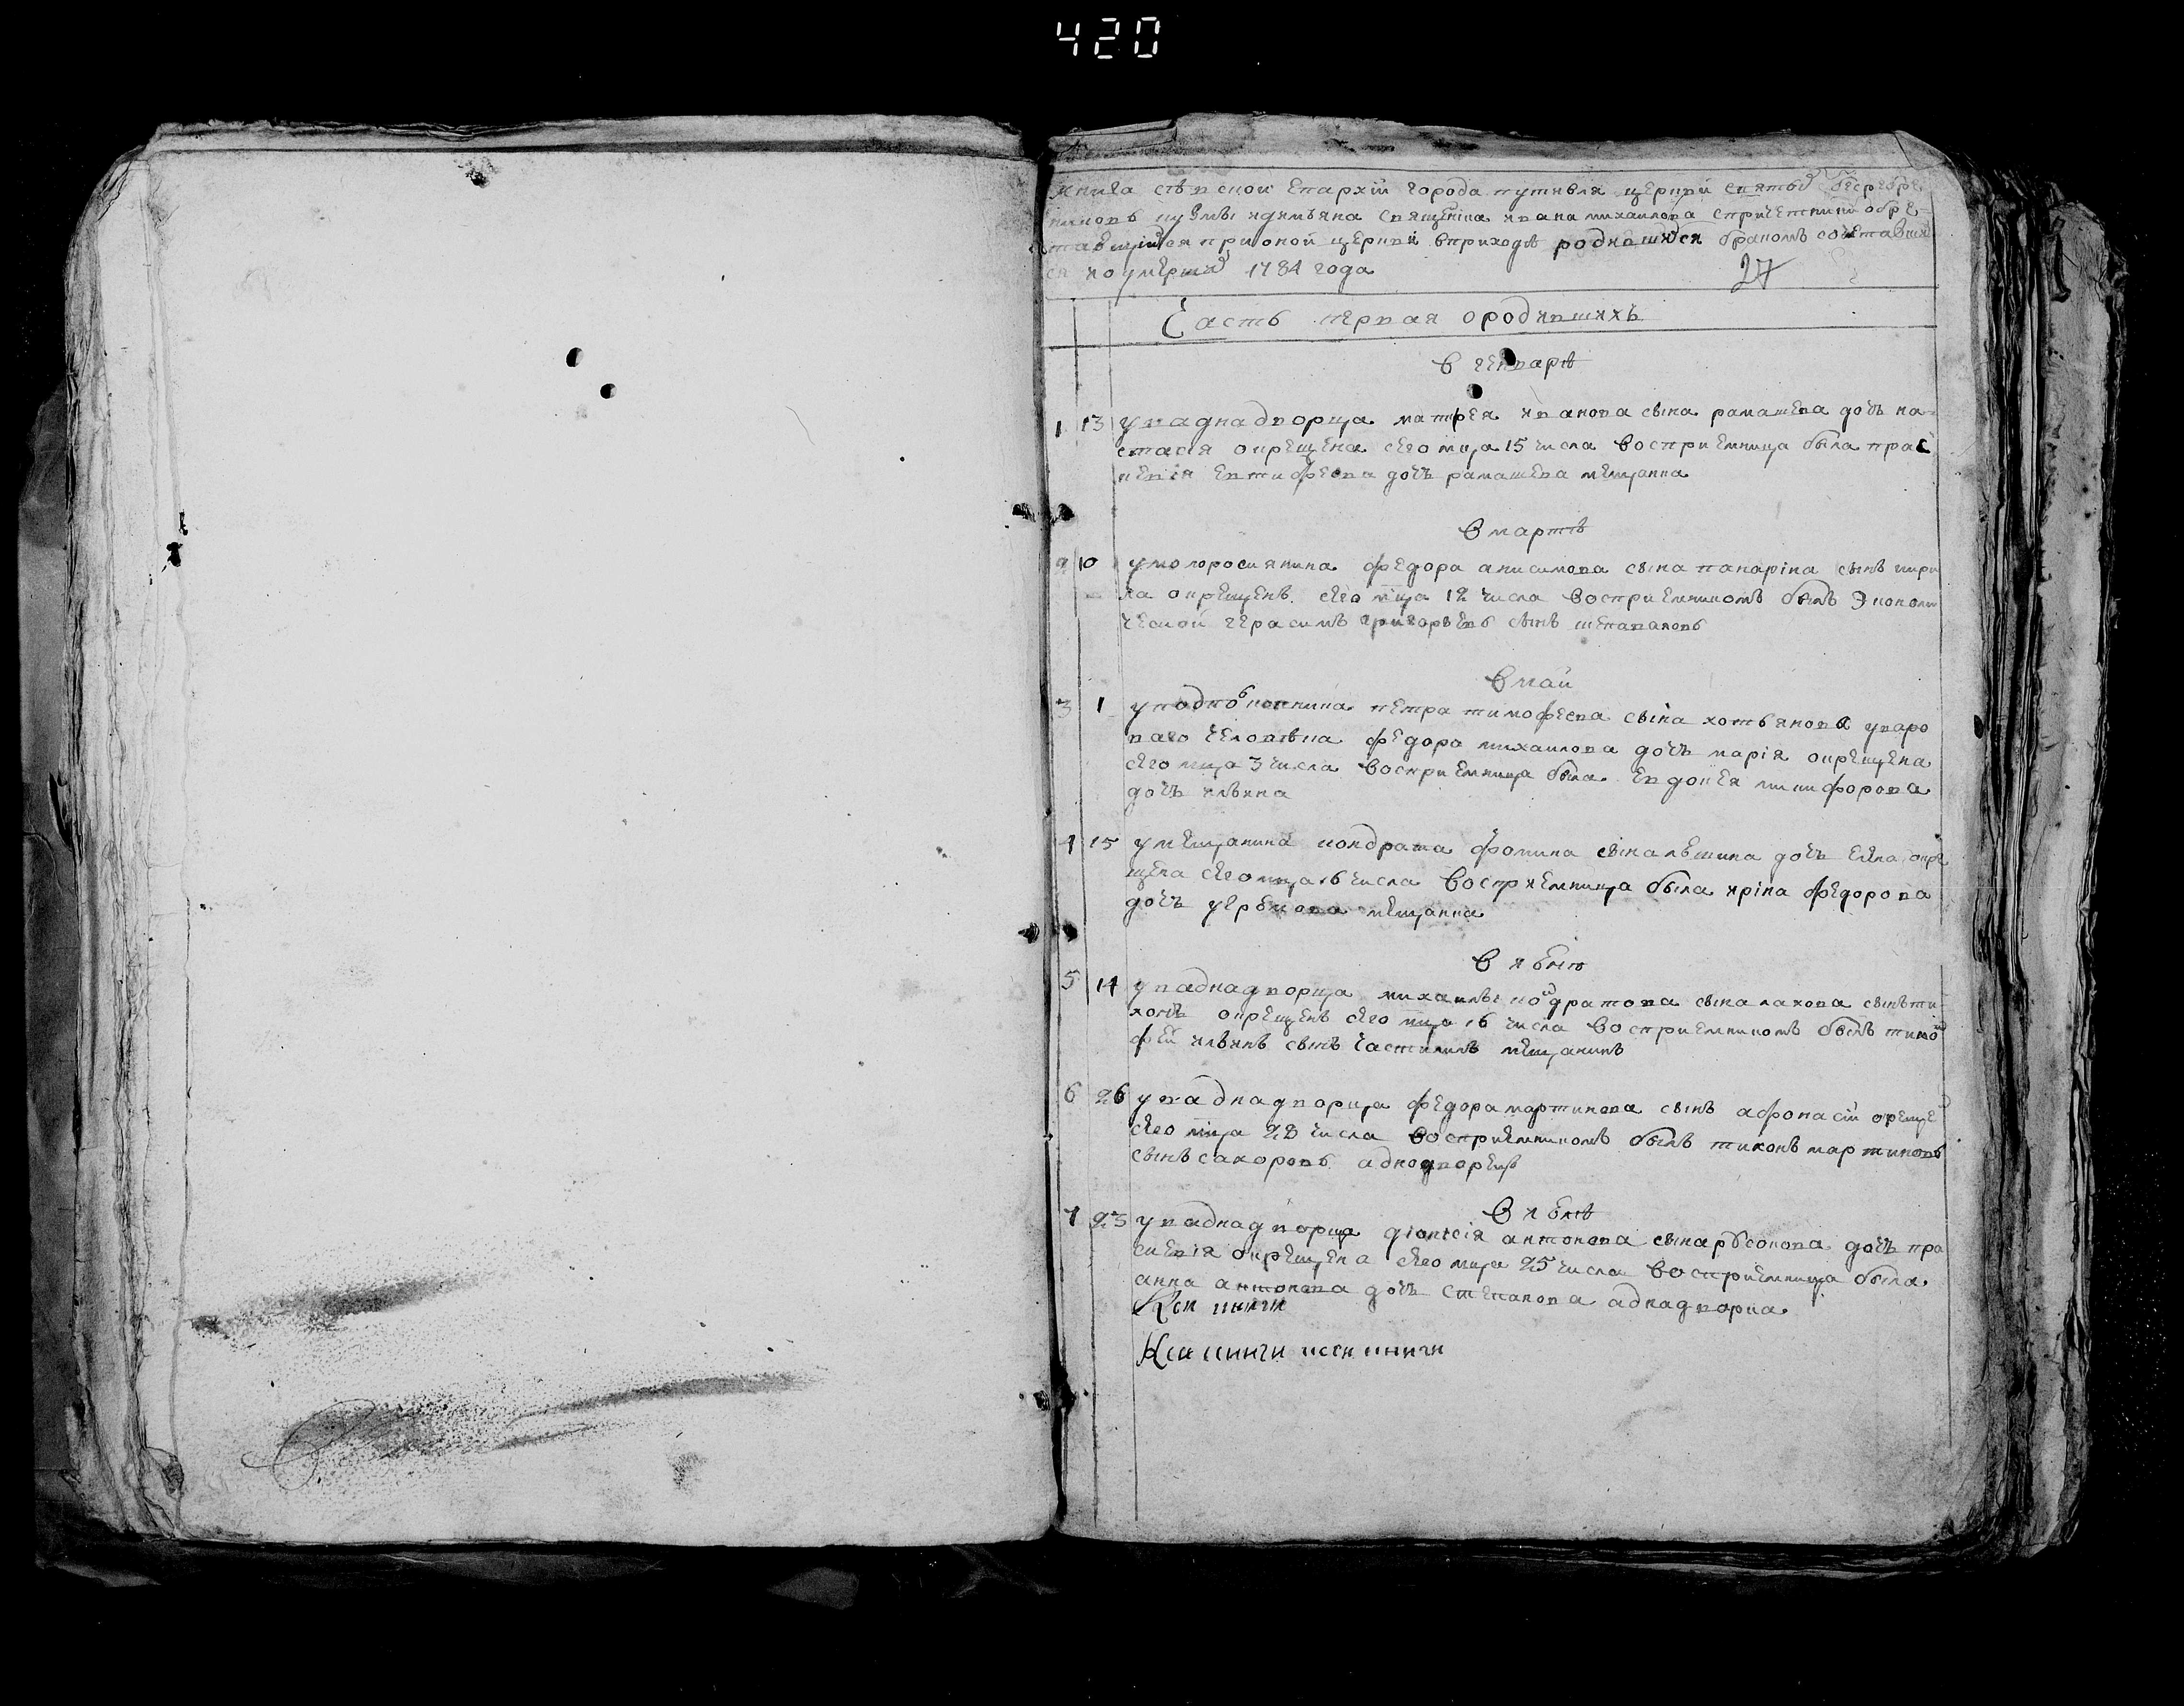 420
книга сѣвской епархіи города путивля церкви святыхъ бесребре
никовъ кузмы идимьяна священіка ивана михаилова спричетники обре
тающійся прионой церкви вприходѣ родившихся бракомъ сочетавших
ся иоумершихъ 1784 года
27
Часть первая ородившихъ
в генварѣ
1 13 уваднадворца матфея иванова сына рамашева дочь на
стасія окрещена сего мца 15 числа восприемница была прас
кевія евтифеева дочь рамашева мещанка
в мартѣ
2 10 умолоросиянина федора анисимова сына панаріна сынъ кири
ла окрещенъ сего мца 12 числа восприемникомъ былъ экономи
ческой герасимъ григорьевъ сынъ шеповаловъ
в маи
3 1 петра тимофеева сына хотьянова уваро
ваго человѣка федора михаилова дочь марія окрещена
сего мца 3 числа восприемница была евдокея никифорова
дочь ильина
4 15 умещанина кондрата фомина сына дочь елена окре
щена сего мца 16 числа восприемница была иріна федорова
дочь мещанка
в
5 14 уваднадворца михаилы кондратова сына лахова сынъ ти
хонъ окрещенъ сего мца 16 числа восприемникомъ былъ тимо
фей ильинъ сынъ частикинъ мещанинъ
6 26 уваднадворца федора мартинова сынъ афонасій окреще
сего мца 28 числа восприемникомъ былъ тихонъ мартиновъ
сынъ сахоровъ аднодворецъ
в
7 23 уваднадворца діонісія антонова сына дочь пра
скевія окрещена сего мца 25 числа восприемница была
анна антонова дочь степанова аднадворка
Ксн книги
Ксн книги ксен книги